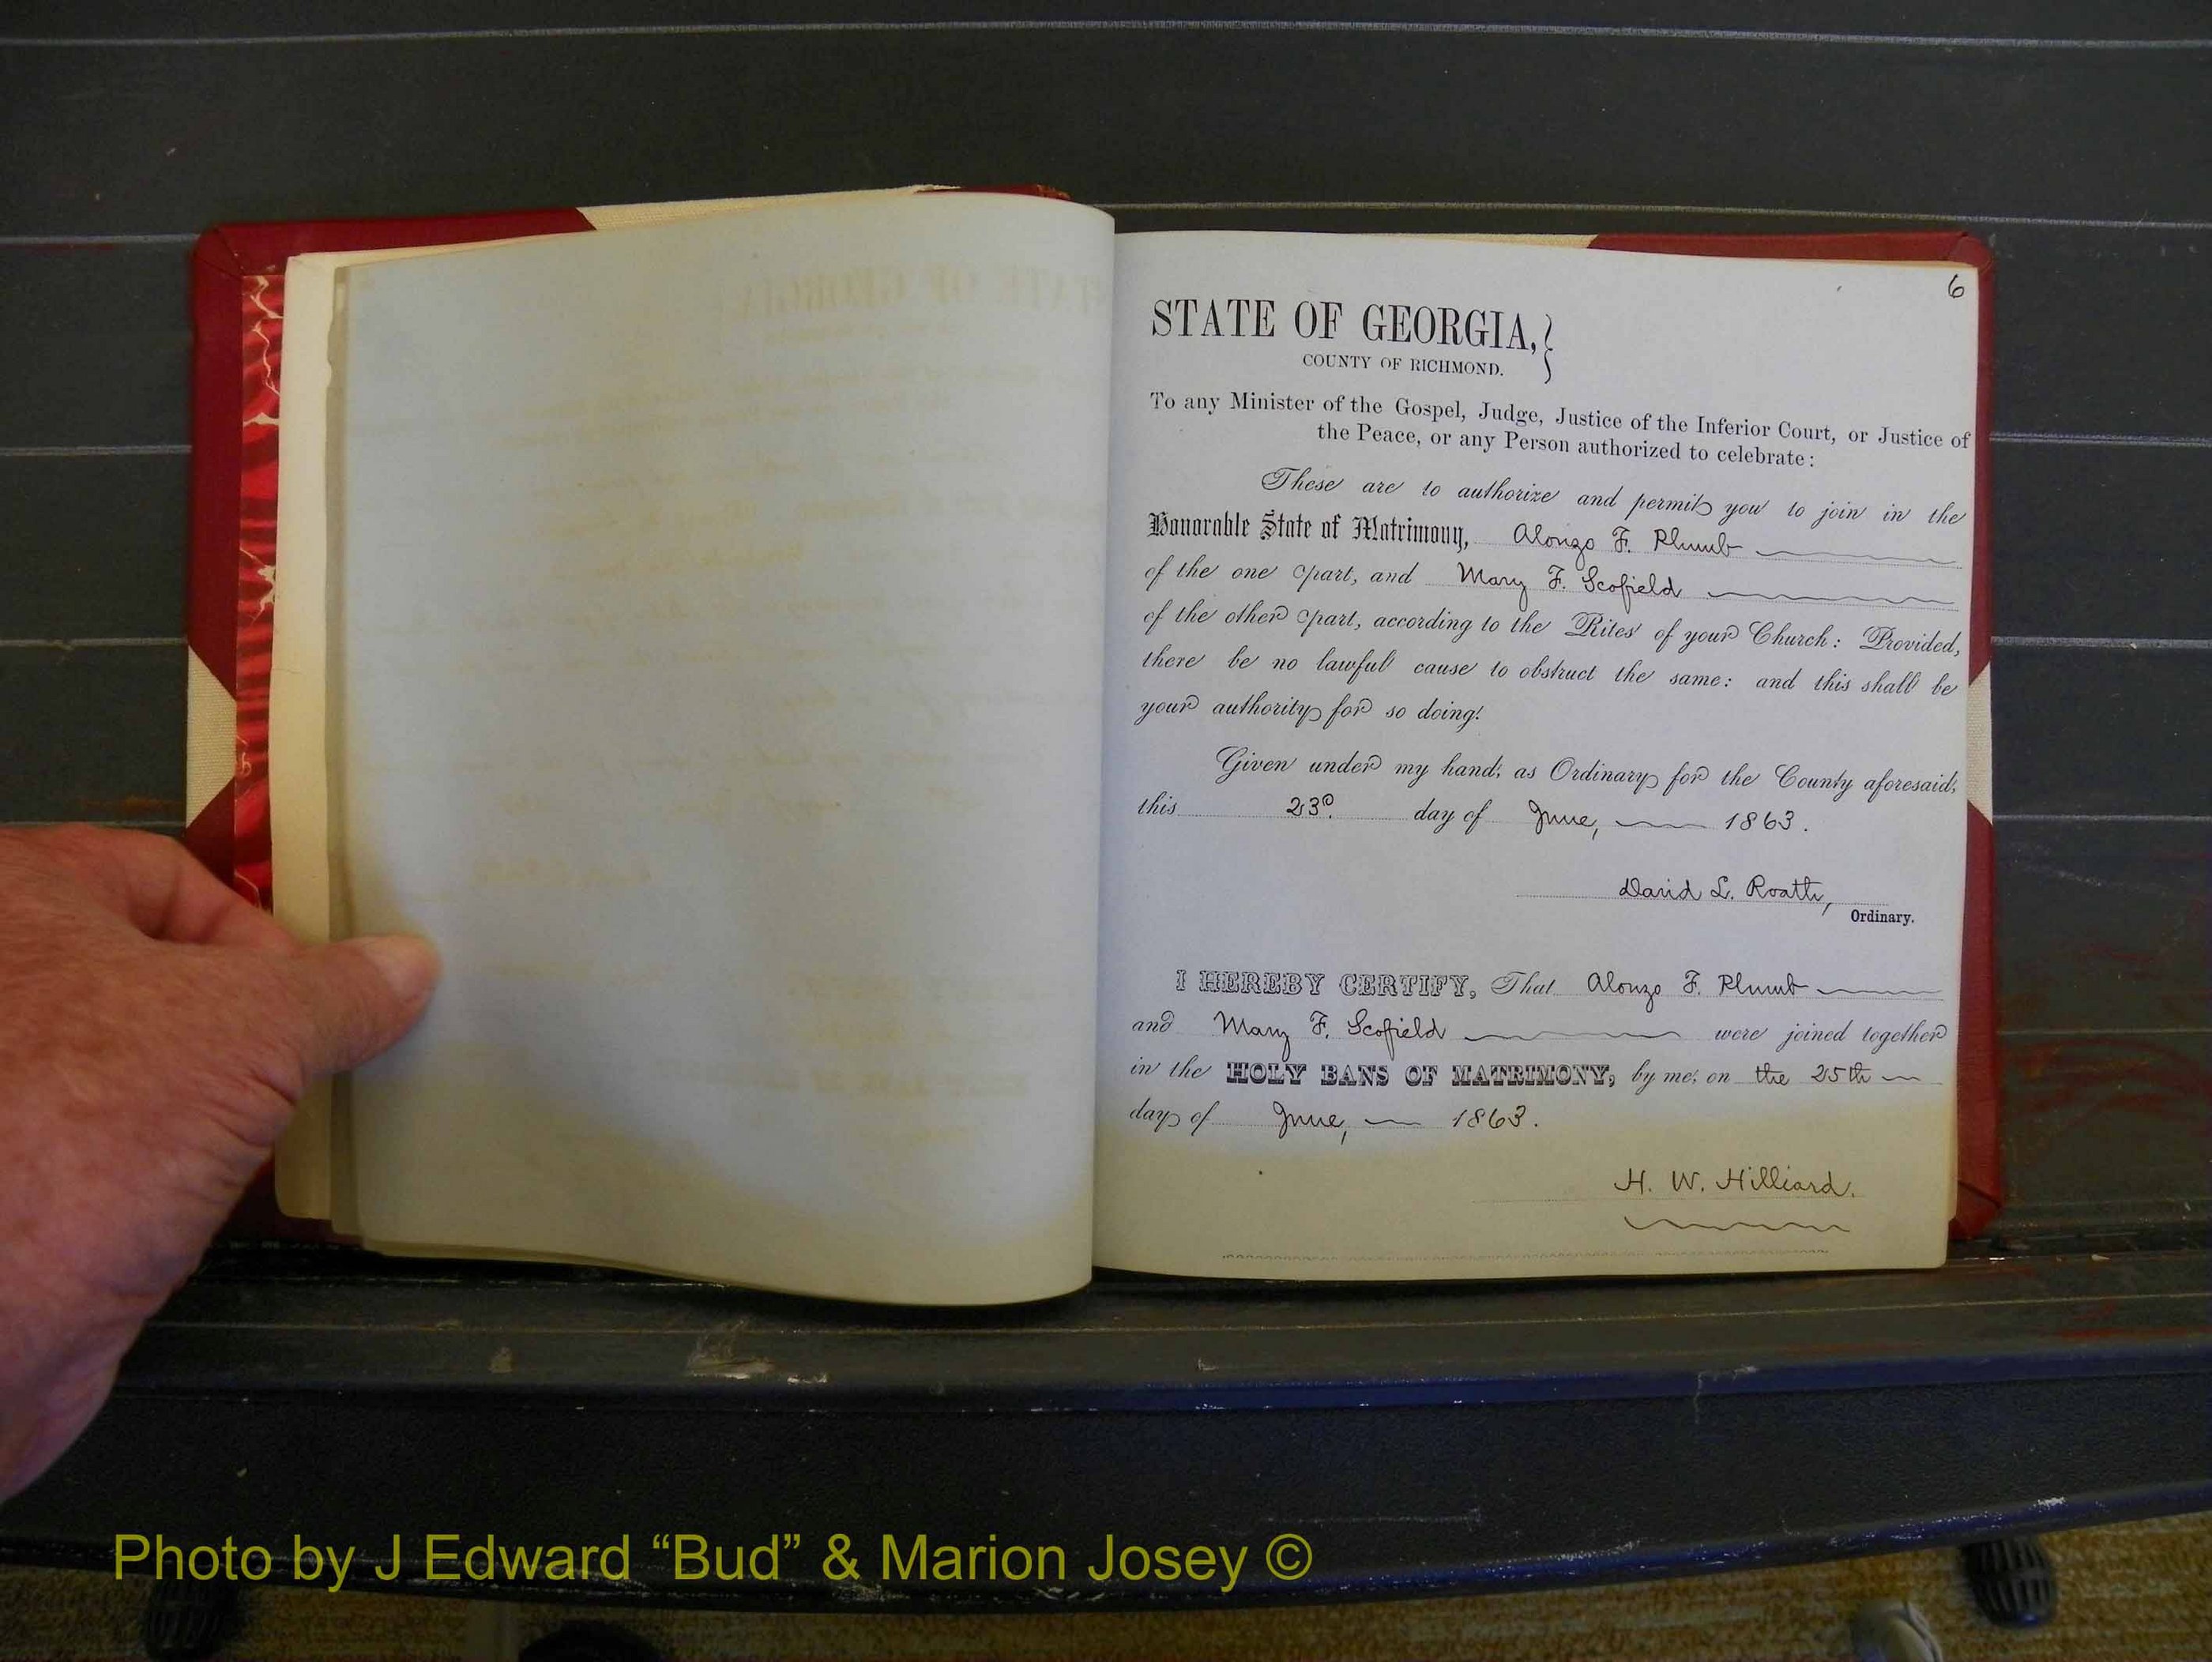 6
STATE OF GEORGIA,}
COUNTY OF RICHMOND.
To any Minister of the Gospel, Judge, Justice of the Inferior Court, or Justice of
the Peace, or any Person authorized to celebrate:
These are to authorize and permit you to join in the
Honorable State of Matrimony, Alonzo F. Plumb
of the one part, and Mary F. Scofield
of the other part, according to the Rites of your Church: Provided,
there be no lawful cause to obstruct the same: and this shall be
your authority for so doing.
Given under my hand, as Ordinary for the County aforesaid,
this 23d. day of June, 1863.
David L. Roath,
Ordinary.
I HEREBY CERTIFY, That Alonzo F. Plumb
and Mary F. Scofield were joined together
in the HOLY BANS OF MATRIMONY, by me, on the 25th
day of June, 1863.
H. W. Hilliard.
Photo by J Edward “Bud” & Marion Josey ©